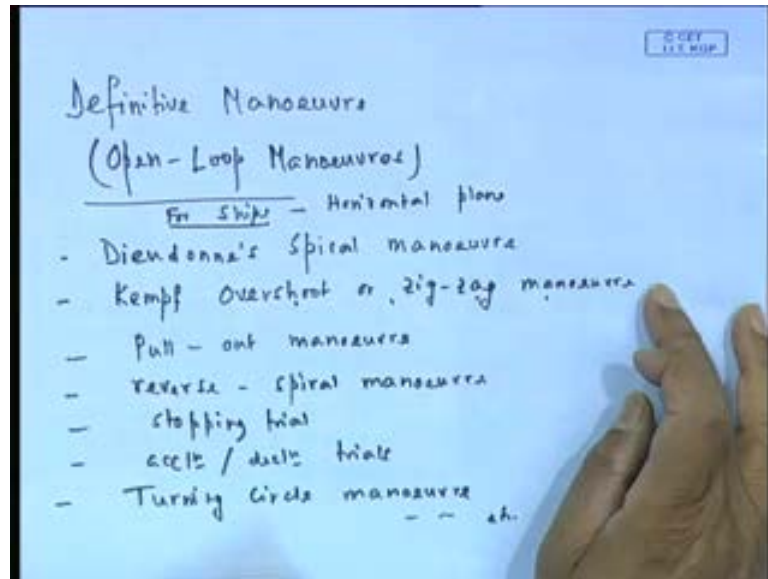 © CET
I.I.T. KGP
Definitive Manoeuvre
(Open-Loop Manoeuvres)
For Ships - Horizontal plane
- Dieudonne's Spiral manoeuvre
- Kempf overshoot or zig-zag manoeuvre
- Pull-out manoeuvre
- reverse-spiral manoeuvre
- stopping trial
- accltn / decltn trials
- Turning Circle manoeuvre
-- etc.